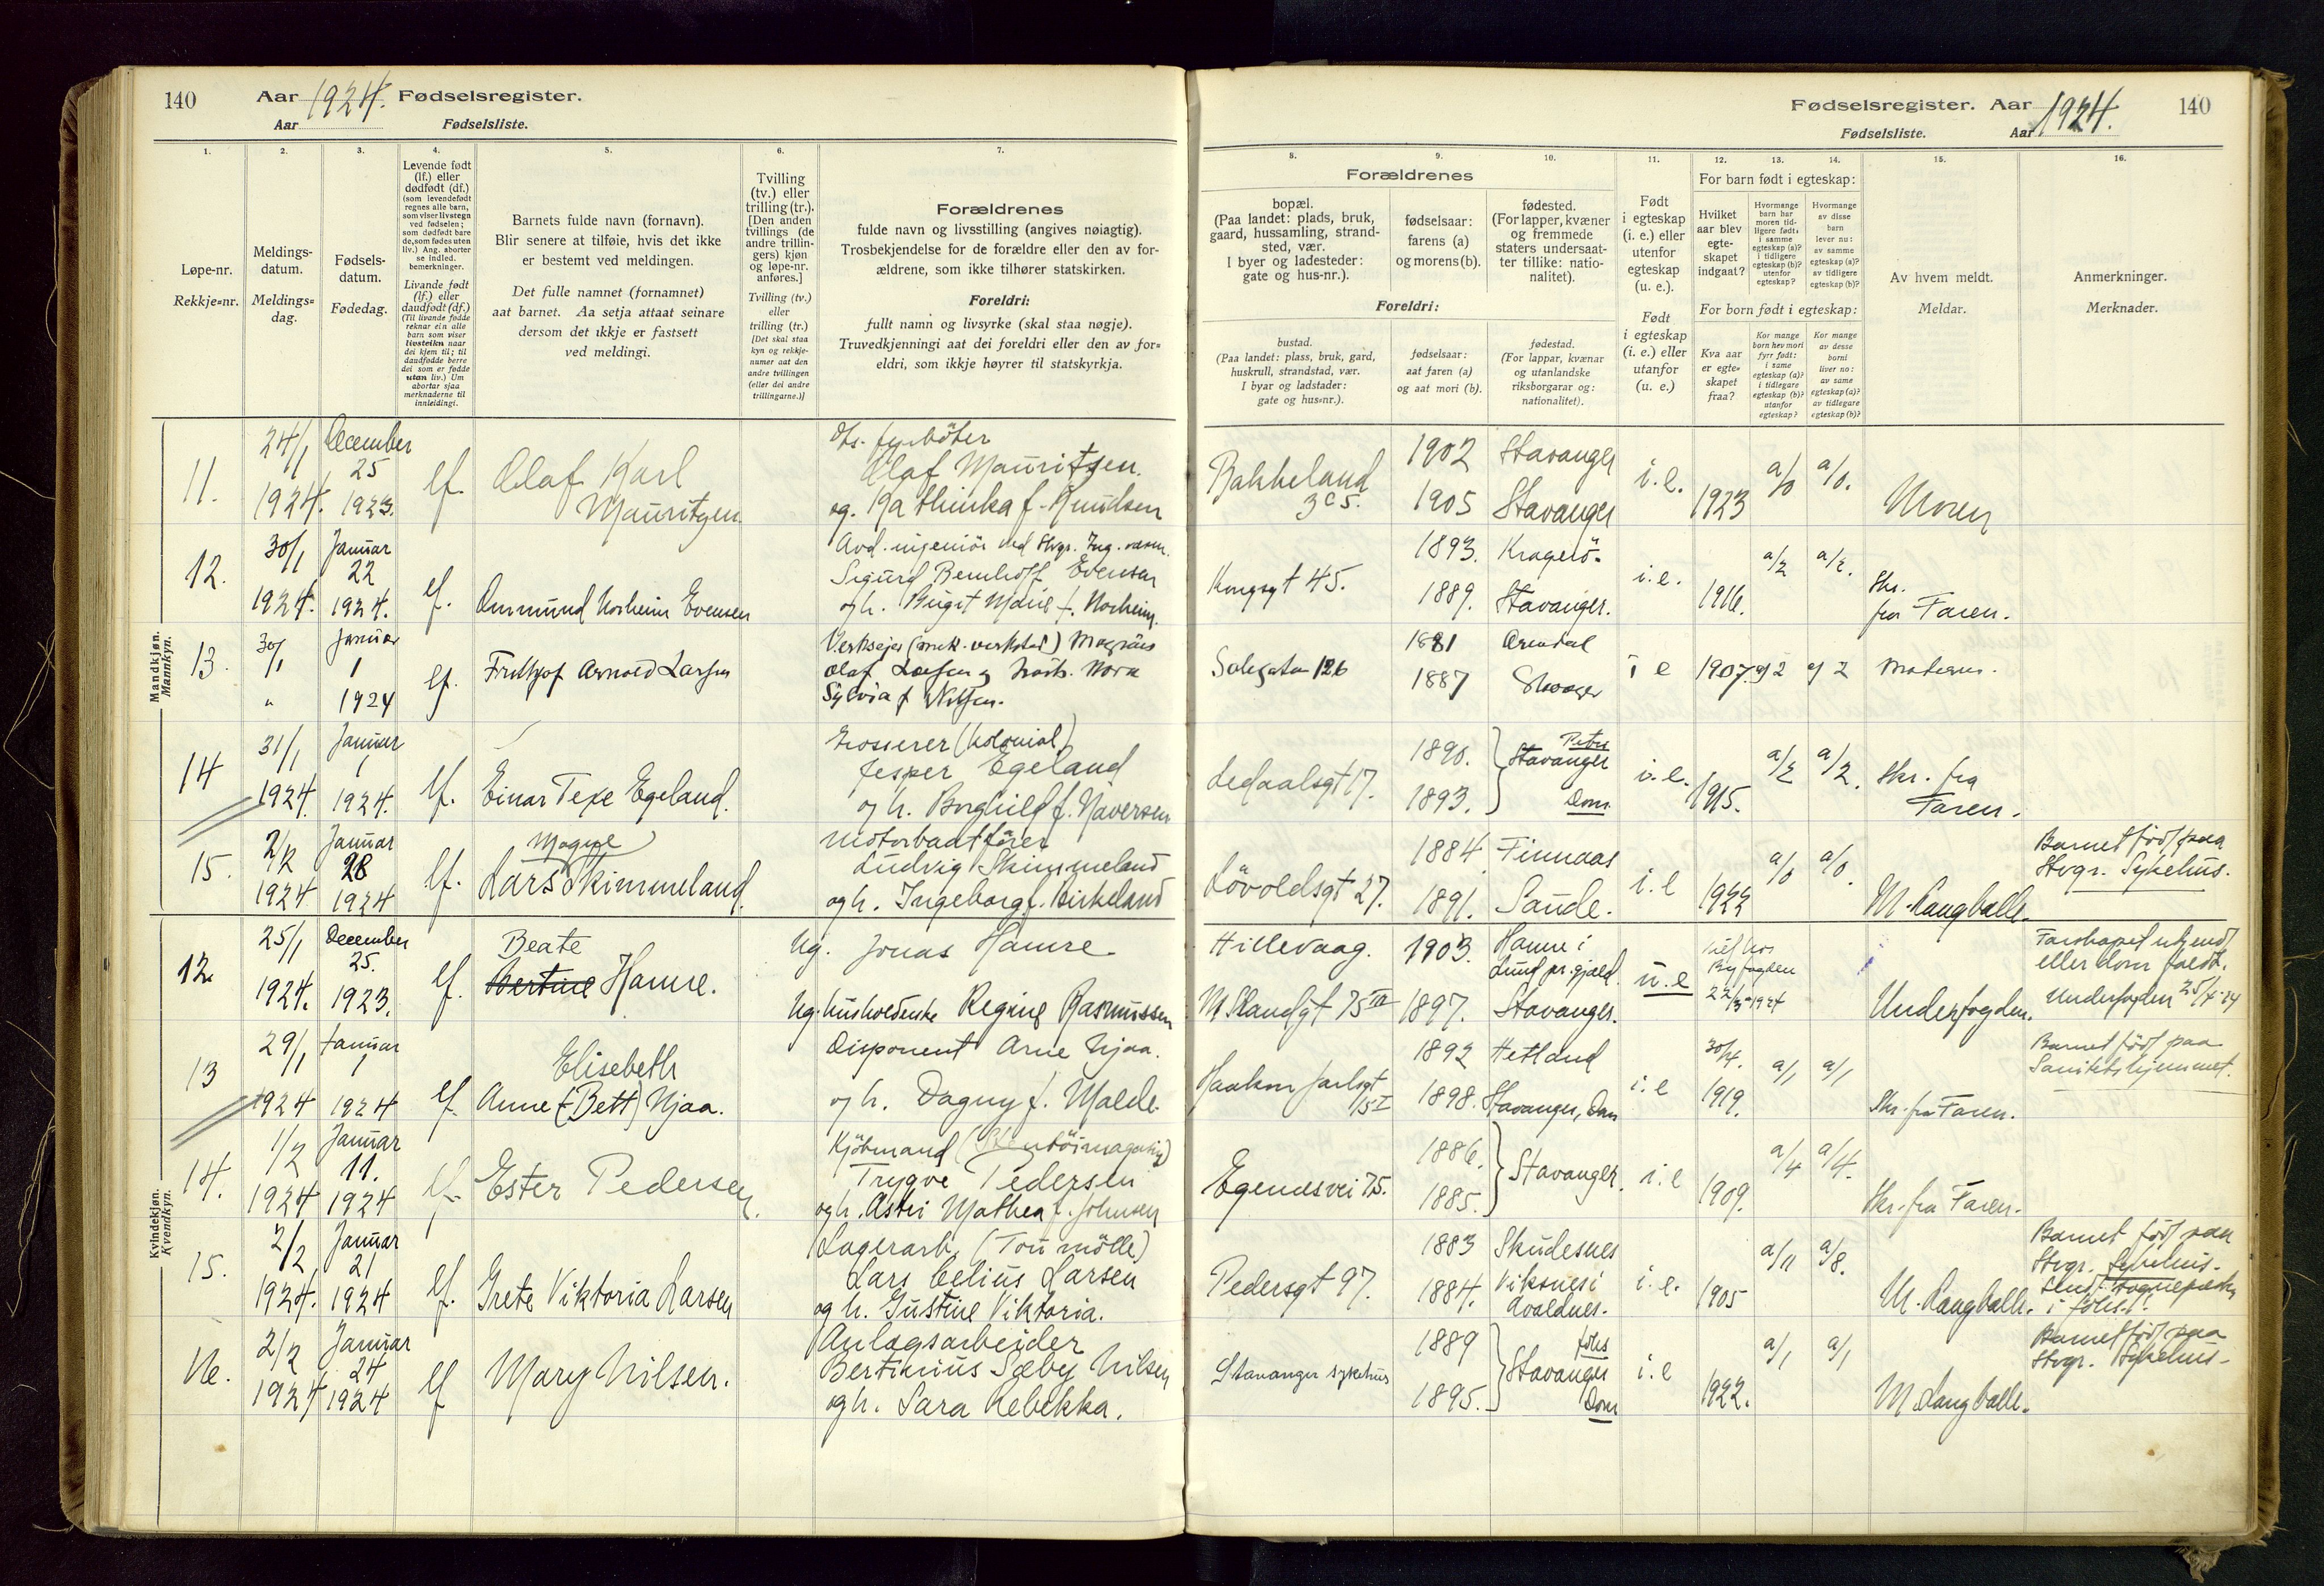 140 Aar 1924. Fødselsregister.
Aar Fødselsliste.
1. 2. 3. 4. 5. 6. 7.
Løpe-nr.
Rekkje-nr.
Meldings-
datum.
Meldings-
dag.
Fødsels-
datum.
Fødedag.
Levende født
(lf.) eller
dødfødt (df.)
(som levendefødt
regnes alle barn,
som viser livstegn
ved fødselen;
som dødfødt bare
de, som fødes uten
liv.) Ang. aborter
se indled.
bemerkninger.
Livande født
(lf.) eller
daudfødt (df.)
(Til livande fødde
reknar ein alle
barn som viser
livsteikn naar
dei kjem til; til
daudfødde berre
dei som er fødde
utan liv.) Um
abortar sjaa
merknaderne til
innleidingi.
Barnets fulde navn (fornavn).
Blir senere at tilføie, hvis det ikke
er bestemt ved meldingen.
Det fulle namnet (fornamnet)
aat barnet. Aa setja attaat seinare
dersom det ikkje er fastsett
ved meldingi.
Tvilling
(tv.) eller
trilling (tr.).
[Den anden
tvillings (de
andre trillin-
gers) kjøn
og løpe-nr.
anføres.]
Tvilling (tv.)
eller
trilling (tr.)
[Det skal staa
kyn og rekkje-
numer aat den
andre tvillingen
(eller dei andre
trillingarne.)]
Forældrenes
fulde navn og livsstilling (angives nøiagtig).
Trosbekjendelse for de forældre eller den av for-
ældrene, som ikke tilhører statskirken.
Foreldri:
fullt namn og livsyrke (skal staa nøgje).
Truvedkjenningi aat dei foreldri eller den av for-
eldri, som ikkje høyrer til statskyrkja.
Mandkjøn.
Mannkyn.
11.
24/1
1924.
December
25
1923.
lf.
Olaf Karl
Mauritzen
fyrböter
Olaf Mauritzen.
og. Kathinka f. Knudsen
12.
30/1
1924.
Januar
22
1924.
lf.
Norheim Evensen
Avd. ingeniör ved Stvgr.
Sigurd Bernhoff Evensen
og h. Birgit Marie f. Norheim.
13.
30/1
"
Januar
1
1924
lf.
Frithjof Arnold Larsen
Verksejer (mek. verksted) Magnus
Olaf Larsen og Nora
Sylvia f Nilsen.
14
31/1
1924.
Januar
1
1924.
lf.
Einar Texe Egeland.
Grosserer (kolonial)
Jesper Egeland
og h. Borghild f. Haversen
15.
2/2
1924
Januar
28
1924
lf.
Magne
Lars Skimmeland.
Motorbaatförer
Ludvig Skimmeland
og h. Ingeborg f. Birkeland
Kvindekjøn.
Kvendkyn.
12.
25/1
1924.
December
25.
1923.
lf.
Beate
Bertine Hamre.
Ug. Jonas Hamre.
Ug. husholderske Regine Rasmussen
13
29/1
1924
Januar
1
1924
lf.
Elisebeth
Anne (Bett) Njaa.
Disponent Arne Njaa.
og h. Dagny f. Malde.
14.
1/2
1924
Januar
11.
1924
lf.
Ester Pedersen.
Kjöbmand (Stentöimagasin)
Trygve Pedersen
og h. Astri Mathea f. Johnsen
15.
2/2
1924.
Januar
21
1924
lf.
Grete Viktoria Larsen
Lagerarb. (Tou mölle)
Lars Celius Larsen
og h. Gustine Viktoria.
2/2
1924
Januar
24
1924
lf
Mary Nilsen.
Anlægsarbeider
Bertinius Sæby Nilsen
og h. Sara Rebekka.
Fødselsregister. Aar 1924. 140
Fødselsliste. Aar
8. 9. 10. 11. 12. 13. 14. 15. 16.
Forældrenes
bopæl.
(Paa landet: plads, bruk,
gaard, hussamling, strand-
sted, vær.
I byer og ladesteder:
gate og hus-nr.).
fødselsaar:
farens (a)
og morens (b).
fødested.
(For lapper, kvæner
og fremmede
staters undersaat-
ter tillike: natio-
nalitet).
Foreldri:
bustad.
(Paa landet: plass, bruk, gard,
huskrull, strandstad, vær.
I byar og ladstader:
gate og hus-nr.).
fødselsaar:
aat faren (a)
og aat mori (b).
fødestad.
(For lappar, kvænar
og utanlandske
riksborgarar og:
nationalitet).
Født
i egteskap
(i. e.) eller
utenfor
egteskap
(u. e.).
Født
i egteskap
(i. e.) eller
utanfor
(u. e.)
For barn født i egteskap:
Hvilket
aar blev
egte-
skapet
indgaat?
Hvormange
barn har
moren tid-
ligere født:
i samme
egteskap (a)?
i tidligere
egteskap (b)?
utenfor
egteskap?
Hvormange
av disse
barn
lever nu:
av samme
egteskap (a)?
av tidligere
egteskap (b)?
For born født i egteskap:
Kva aar
er egte-
skapet
fraa?
Kor mange
born hev mori
fyrr født:
i same
egteskap (a)?
i tidlegare
egteskap (b)?
utanfor
egteskap?
Kor mange
av desse
borni
liver no:
av same
egteskap (a)?
av tidlegare
egteskap (b)?
Av hvem meldt.
Meldar.
Anmerkninger.
Merknader.
Bakkeland
3 c 5.
1902
1905
Stavanger
Stavanger
i. e.
1923
a/0 a/0.
Moren
Kongsgt 45.
1893.
1889.
Kragerö.
Stavanger.
i. e.
1916.
a/2 a/2.
Skr.
fra Faren.
126
1881
1887
Arendal
Stavanger
i e
1907.
a/2 a/2
Moderen.
Ledaalsgt 17.
1890.
1893.
Petri
Stavanger
Dom.
i. e.
1915.
a/2 a/2.
Skr. fra
Faren.
Lövoldsgt 27.
1884.
1891.
Finnaas
Saude.
i. e
1922
a/0 a/0.
M. Langballe.
Barnet född paa
Stvgr. Sykehus.
Hillevaag.
M Strandgt 75 III
1903.
1897.
Hamre i
Lund pr. gjæld.
Stavanger.
u. e
Byfogden
Underfogden.
eller dom
Underfogden
Haakon Jarlsgt
15 I
1892
1898.
Hetland
Stavanger, Dom
i. e
30/4.
1919.
a/1 a/1
Skr. fra Faren.
Barnet född paa
Sanitetshjemmet.
Egenesvei 75.
1886.
1885.
Stavanger.
i. e
1909.
a/4 a/4.
Skr. fra Faren.
Pedersgt 97.
1883
1884.
Skudesnes
Viksnes i
Avaldnes.
i. e.
1905
a/11 a/8.
M. Langballe.
Barnet född paa
Stvgr. Sykehus.
Stavanger sykehus
1889
1895.
Stavanger
Dom
i. e
1922.
a/1 a/1
M Langballe.
Barnet född paa
Stvgr. Sykehus.